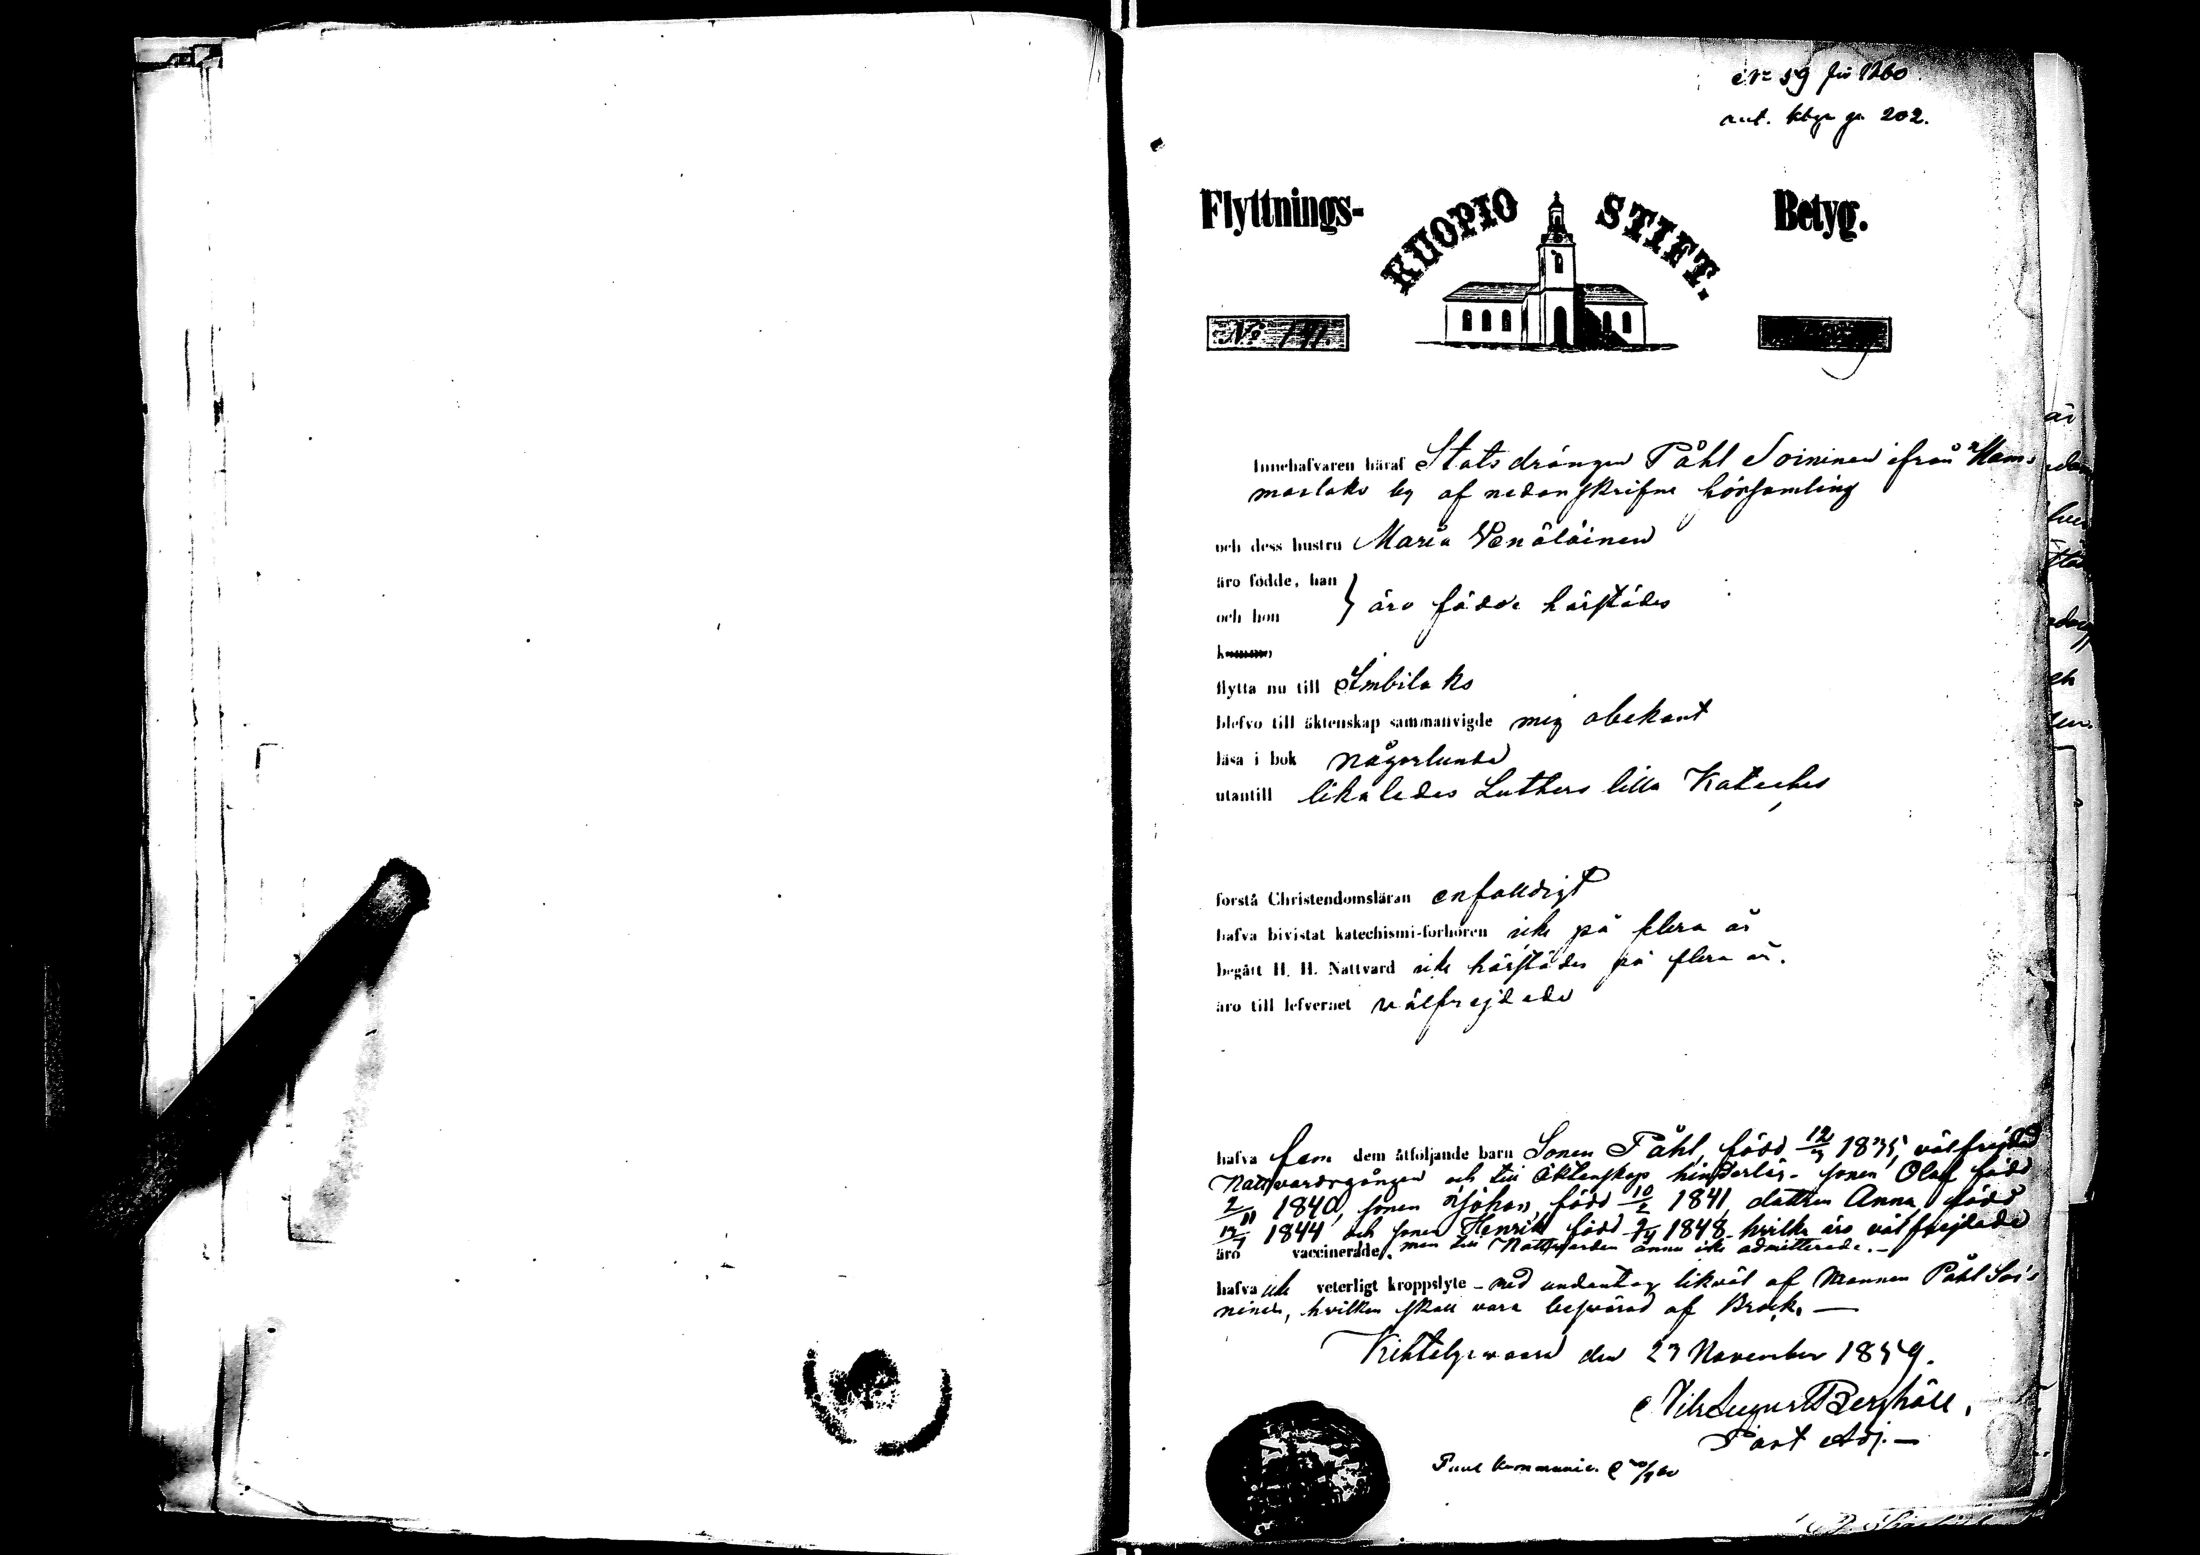 No 59 för 1860
ant. kbgn pg. 202.
Flyttnings- KUOPIO STIFT. Betyg.
No 141.
Innehafvaren häraf Statsdrängen Påhl Soininen ifrån Ham-
maslaks by af nedanskrifne församling
och dess hustru Maria Venäläinen
äro födde, han
och hon } äro födde härstädes
komma
flytta nu till Imbilaks
blefvo till äktenskap sammanvigde mig obekant
läsa i bok någorlunda
utantill likaledes Luthers lilla Kateches
förstå Christendomsläran enfalldigt
hafva bivistat katechismi-förhören icke på flera år
begått H. H. Nattvard icke härstädes på flera år.
äro till lefvernet välfrejdade
hafva fem dem åtföljande barn Sonen Påhl, född 12/3 1835, välfrejdad
Nattvardsgången och till äktenskap hinderlös - sonen Olof född
2/11 1840, sonen Johan, född 10/2 1841, dottren Anna, född
12/7 1844 och sonen Henrik född 2/4 1848 - hvilka äro välfrejdade
äro vaccinerade, men till Nattvarden ännu icke admitterade. -
hafva icke veterligt kroppslyte - med undantag likväl af Mannen Påhl Soi-
ninen, hvilken skall vara besvärad af Brock. -
Kihtelysvaara den 23 November 1859.
Nils August Berghäll,
Past Adj. -